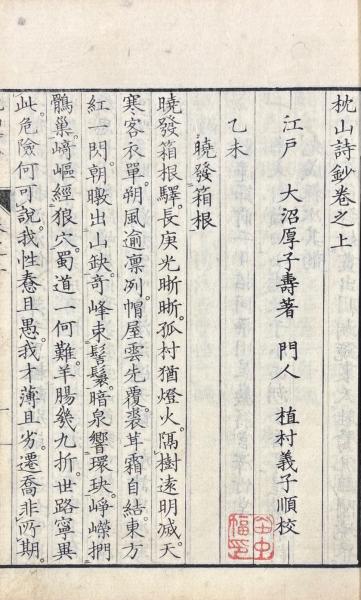 枕山詩鈔卷之上
江戸　大沼厚子壽著　門人　植村義子順校
乙未
曉發箱根
曉發箱根驛。長庚光晣晣。孤村猶燈火。隔樹遠明滅。天
寒客衣單。朔風逾凛冽。帽屋雲先覆。裘茸霜自結。東方
紅一閃。朝暾出山缺。奇峰束髻鬟。暗泉響環玦。崢嶸捫
鶻巢。崎嶇經狼穴。蜀道一何難。羊腸幾九折。世路寧異
此。危險何可說。我性惷且愚。我才薄且劣。遷喬非所期。